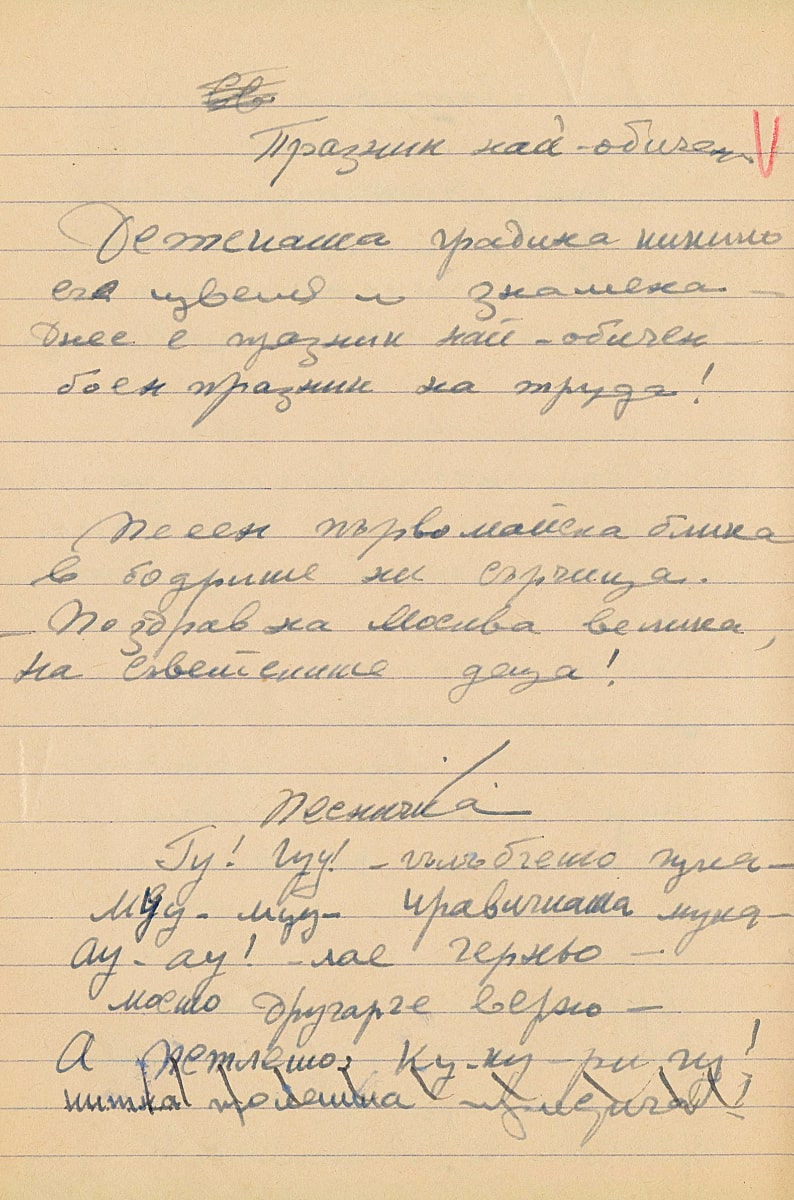 Празник най-обичен
Детската градина кичим
с цветя и знамена –
Днес е празник най-обичен –
боен празник на труда!
Песен първомайска блика
в бодрите ни сърчица.
– Поздрав на Москва велика,
на съветските деца!
Песничка
Гу! Гуу! – гълъбчето гука –
Муу – муу – кравичката мука –
Ау – ау! – лае черньо –
моето другарче верно –
А петлето: Ку-ку-ри гу!